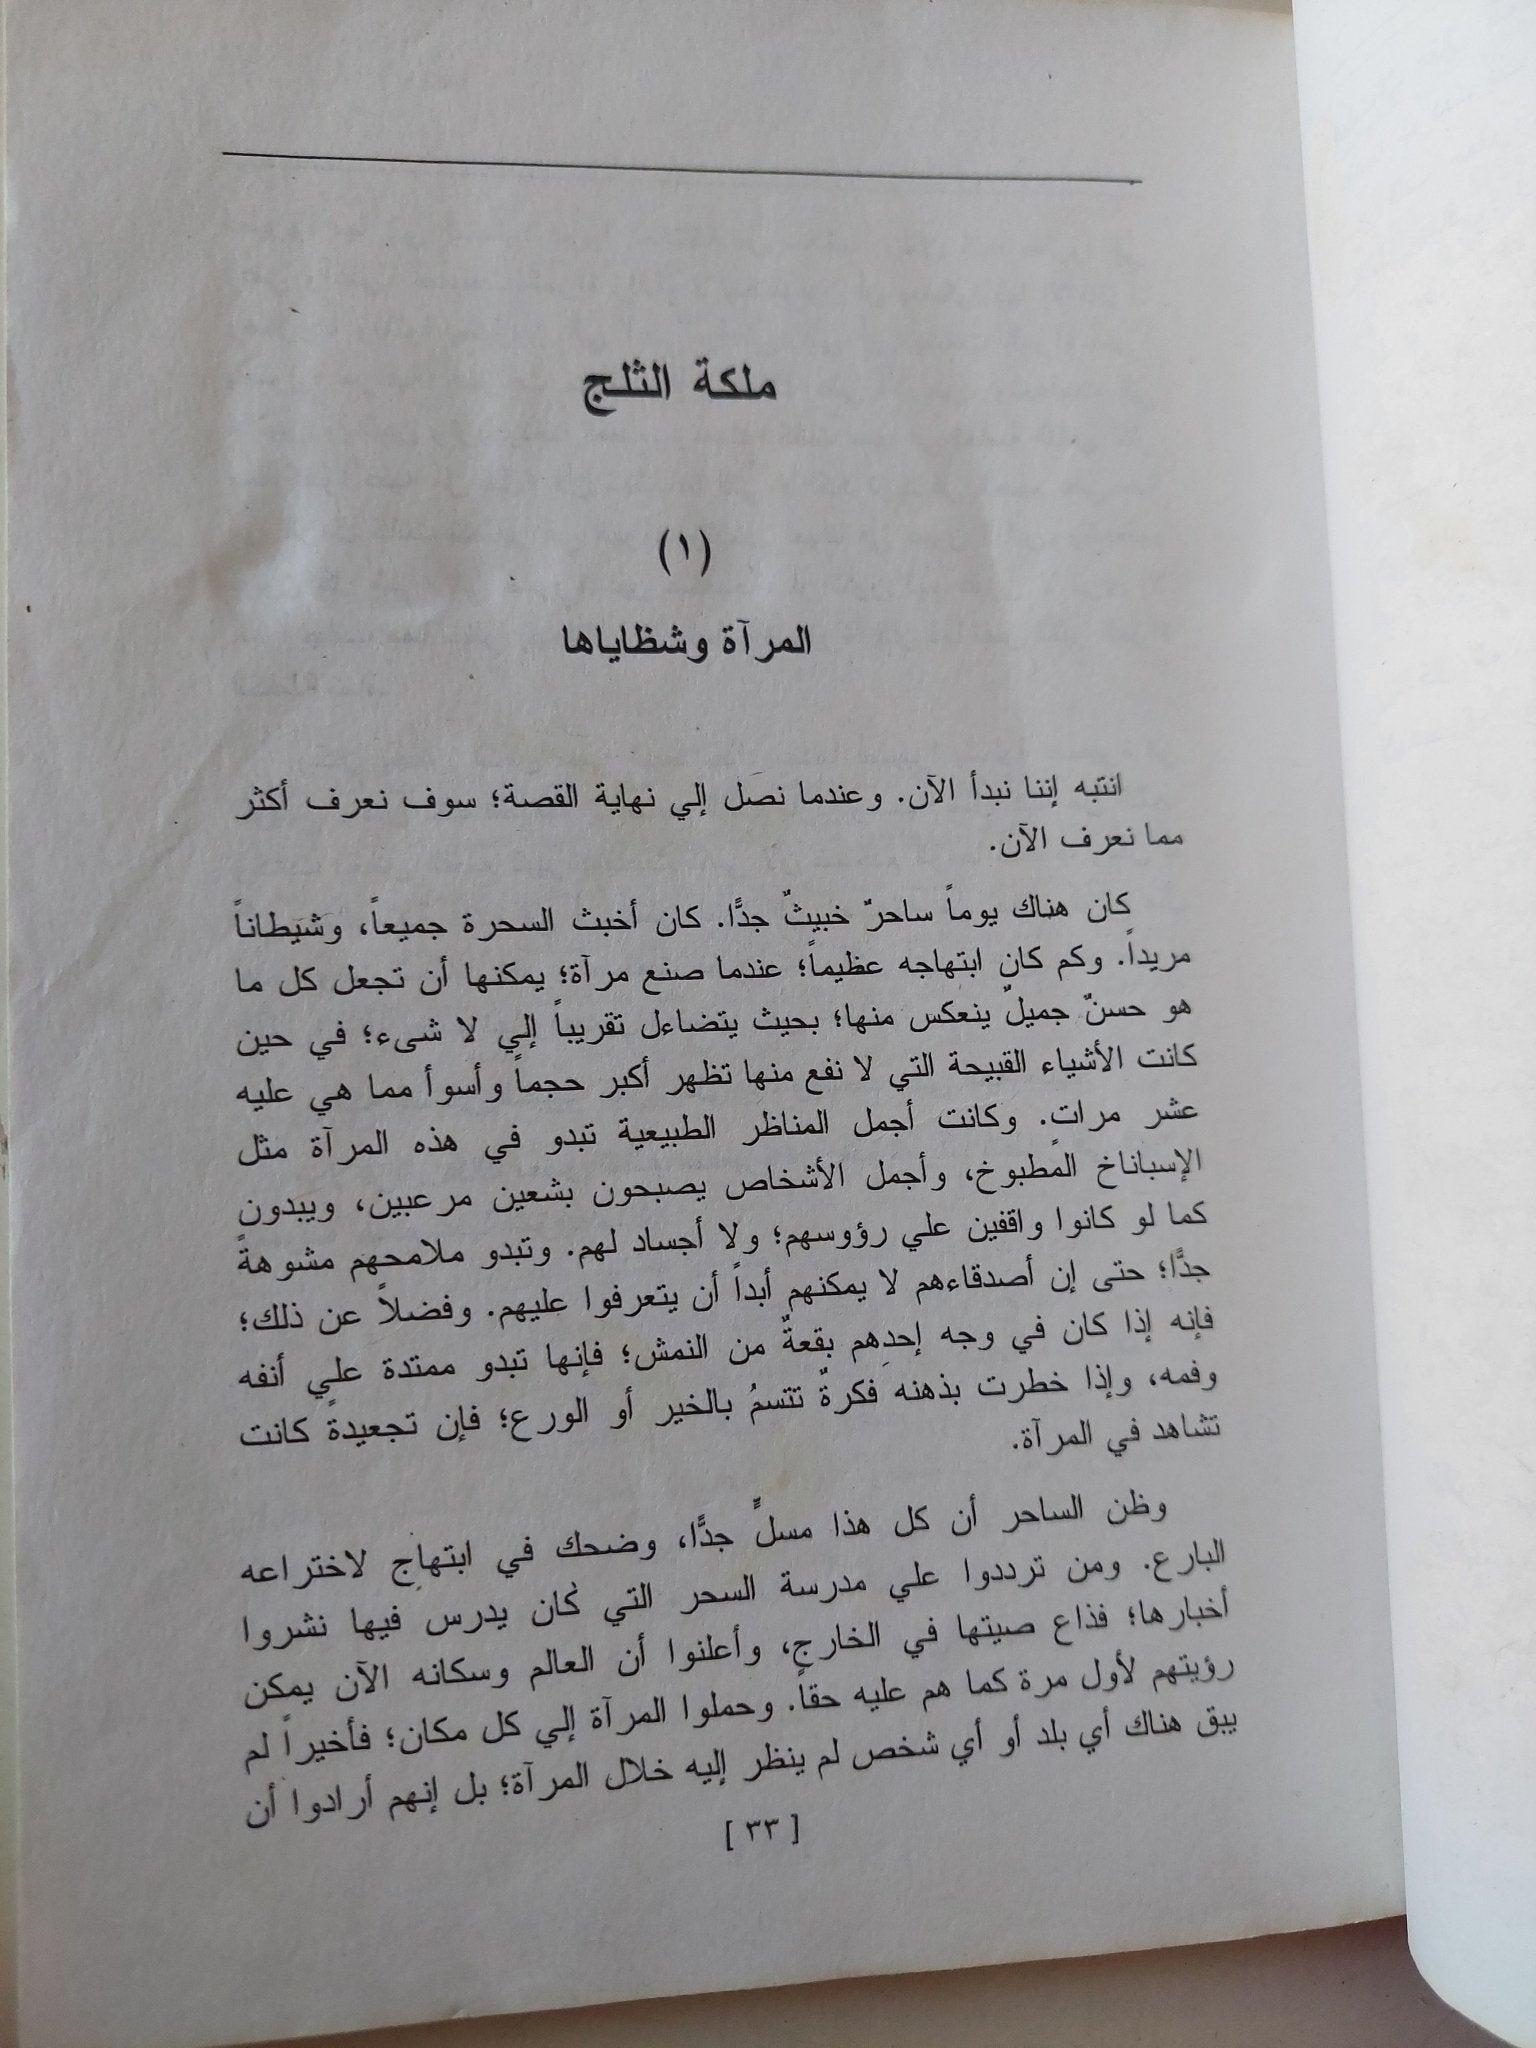 ملكة الثلج
(١)
المرآة وشظاياها
انتبه إننا نبدأ الآن. وعندما نصَل إلي نهاية القصة؛ سوف نعرف أكثر
مما نعرف الآن.
كان هناك يوماً ساحرٌ خبيثٌ جدًّا. كان أخبث السحرة جميعاً، وشيطاناً
مريداً. وكم كان ابتهاجه عظيماً؛ عندما صنع مرآة؛ يمكنها أن تجعل كل ما
هو حسنٌ جميلٌ ينعكس منها؛ بحيث يتضاءل تقريباً إلي لا شىء؛ في حين
كانت الأشياء القبيحة التي لا نفع منها تظهر أكبر حجماً وأسوأ مما هي عليه
عشر مرات. وكانت أجمل المناظر الطبيعية تبدو في هذه المرآة مثل
الإسباناخ المطبوخ، وأجمل الأشخاص يصبحون بشعين مرعبين، ويبدون
كما لو كانوا واقفين علي رؤوسهم؛ ولا أجساد لهم. وتبدو ملامحهم مشوهةً
جدًّا؛ حتى إن أصدقاءهم لا يمكنهم أبداً أن يتعرفوا عليهم. وفضلاً عن ذلك؛
فإنه إذا كان في وجه إحدِهم بقعةٌ من النمش؛ فإنها تبدو ممتدة علي أنفه
وفمه، وإذا خطرت بذهنه فكرةٌ تتسمُ بالخير أو الورع؛ فإن تجعيدةً كانت
تشاهد في المرآة.
وظن الساحر أن كل هذا مسلٍّ جدًّا، وضحك في ابتهاجٍ لاختراعه
البارع. ومن ترددوا علي مدرسة السحر التي كان يدرس فيها نشروا
أخبارها؛ فذاع صيتها في الخارج، وأعلنوا أن العالم وسكانه الآن يمكن
رؤيتهم لأول مرة كما هم عليه حقاً. وحملوا المرآة إلي كل مكان؛ فأخيراً لم
يبق هناك أي بلد أو أي شخص لم ينظر إليه خلال المرآة؛ بل إنهم أرادوا أن
[ ٣٣ ]